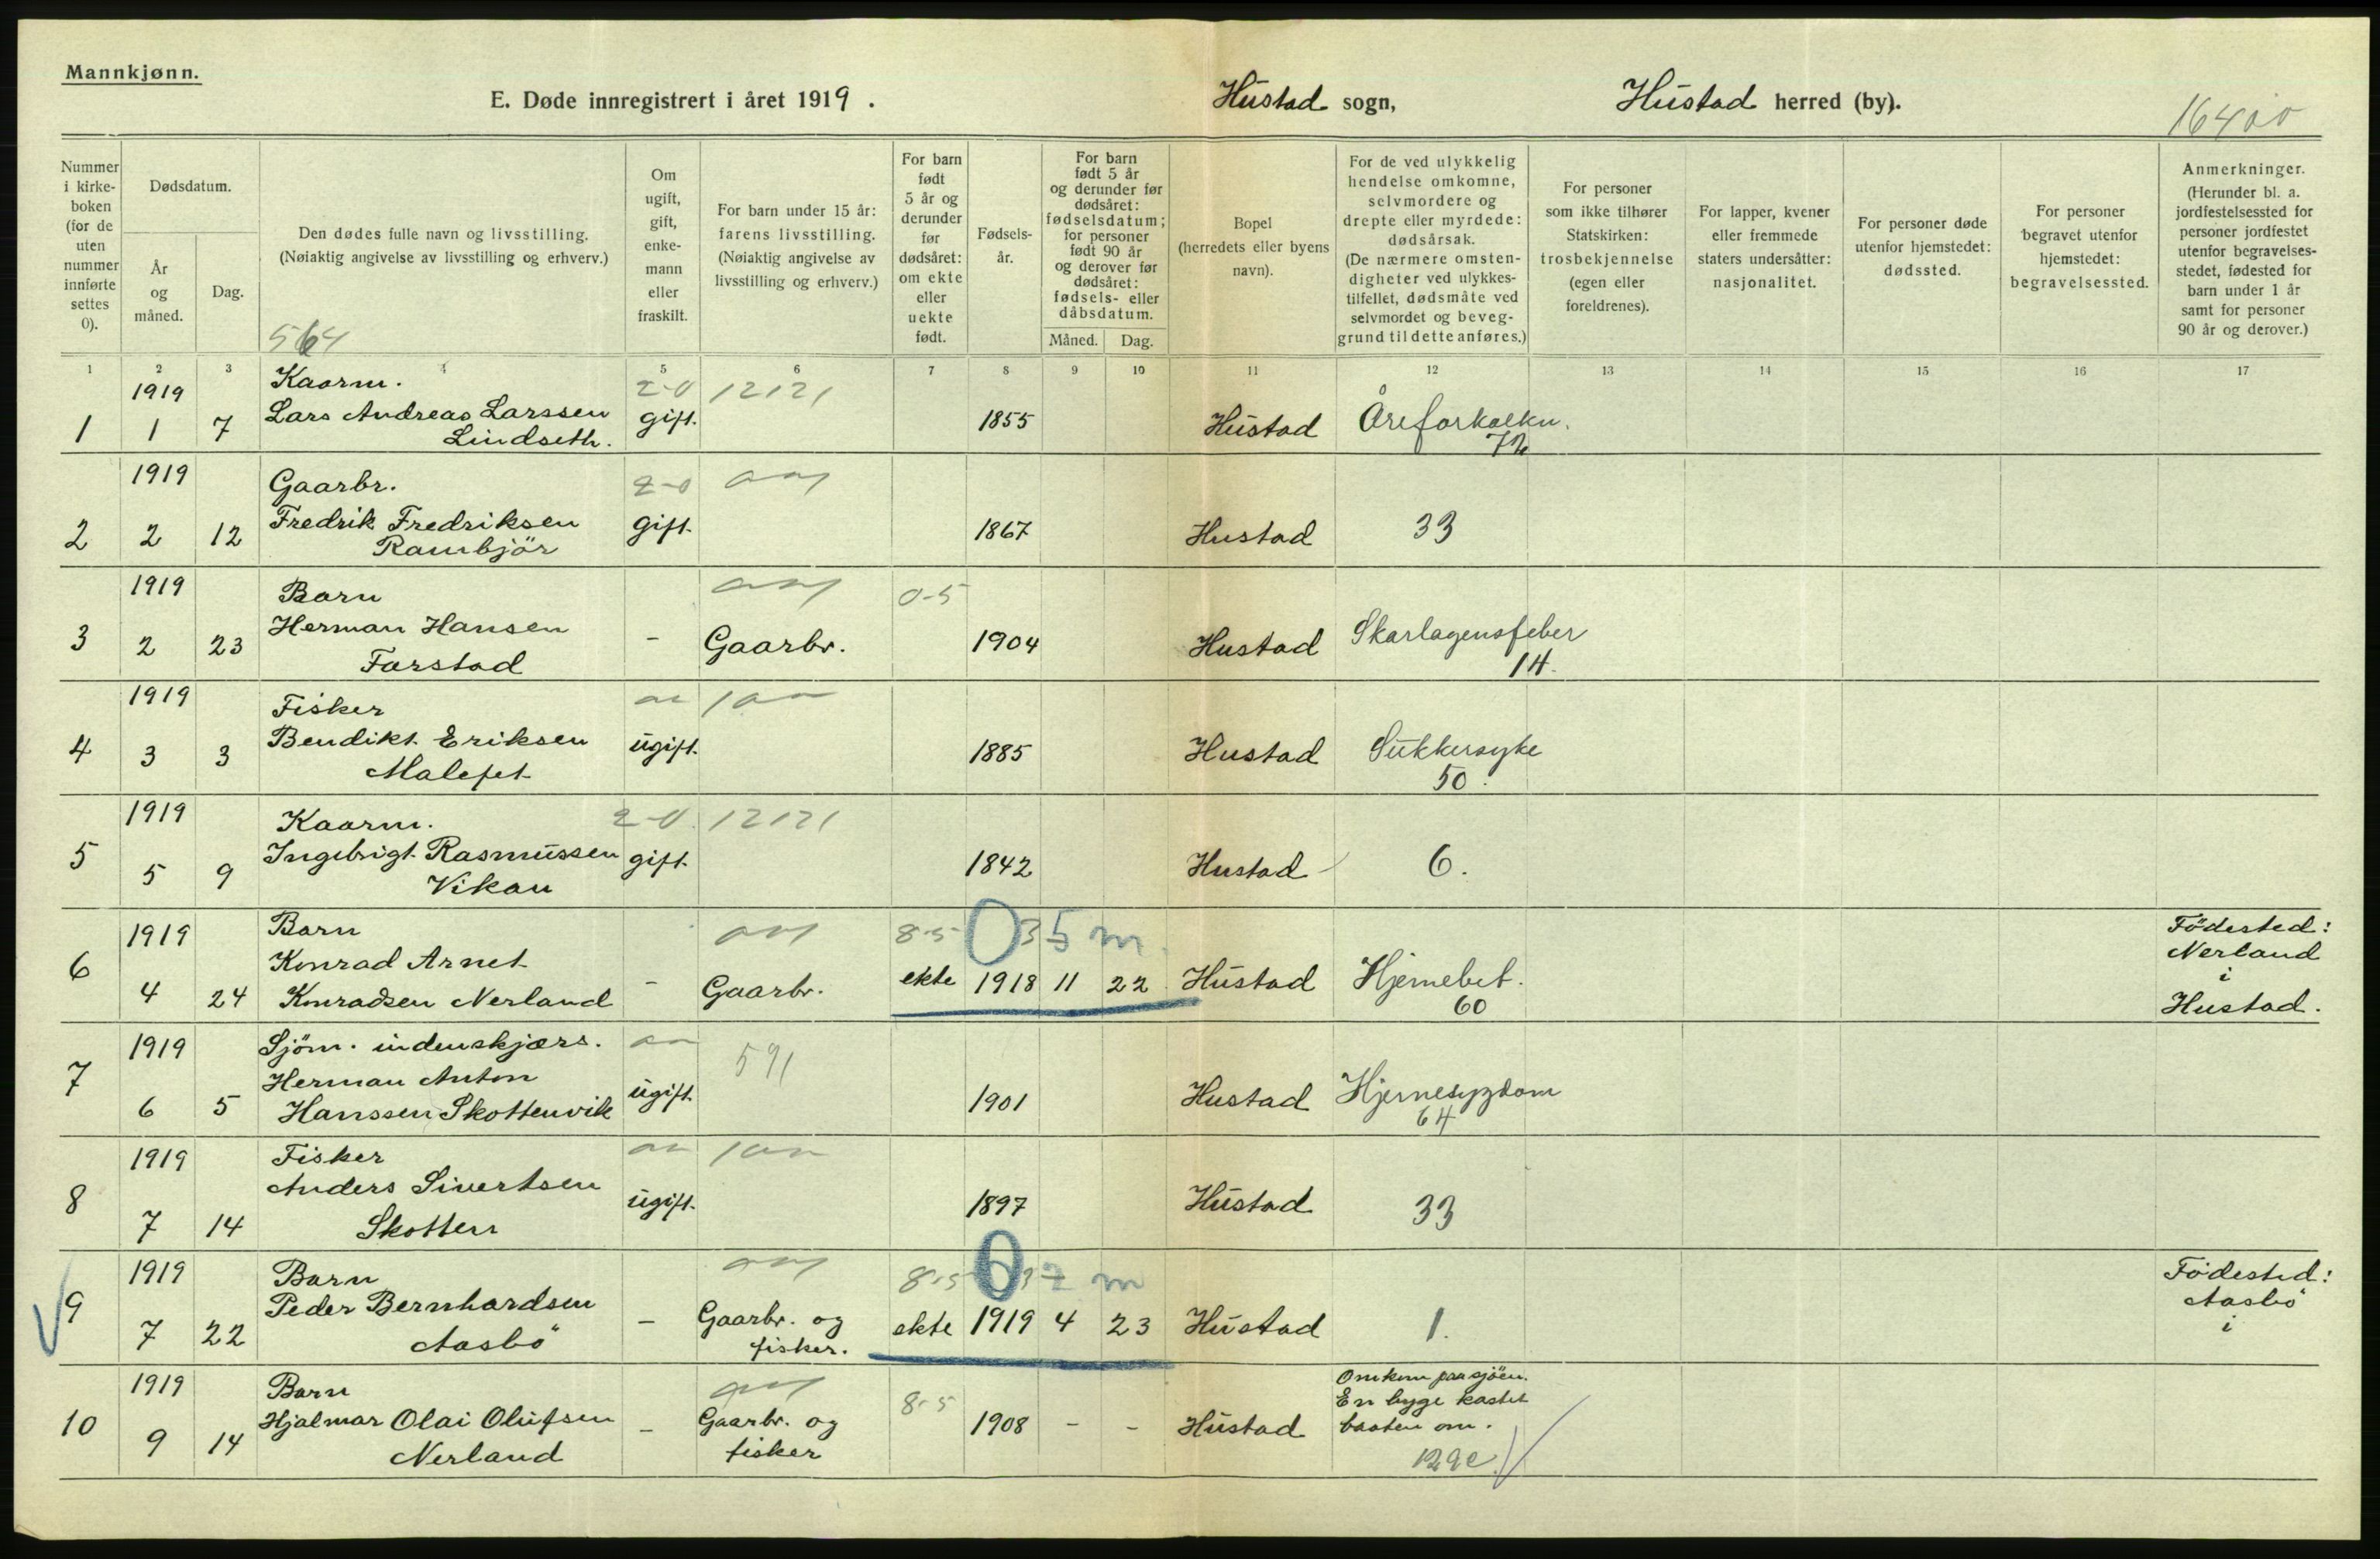 Mannkjønn.
E. Døde innregistrert i året 1919.
Hustad sogn,
Hustad herred (by).
16400
Nummer i kirkeboken (for de uten nummer innførte settes 0).
Dødsdatum.
År og måned.
Dag.
Den dødes fulle navn og livsstilling.
(Nøiaktig angivelse av livsstilling og erhverv.)
564
Om ugift, gift, enkemann eller fraskilt.
For barn under 15 år: farens livsstilling.
(Nøiaktig angivelse av livsstilling og erhverv.)
For barn født 5 år og derunder før dødsåret: om ekte eller uekte født.
Fødselsår.
For barn født 5 år og derunder før dødsåret: fødselsdatum; for personer født 90 år og derover før dødsåret: fødsels- eller dåbsdatum.
Måned. Dag.
Bopel (herredets eller byens navn).
For de ved ulykkelig hendelse omkomne, selvmordere og drepte eller myrdede: dødsårsak.
(De nærmere omstendigheter ved ulykkestilfellet, dødsmåte ved selvmordet og beveggrund til dette anføres.)
For personer som ikke tilhører Statskirken: trosbekjennelse (egen eller foreldrenes).
For lapper, kvener eller fremmede staters undersåtter: nasjonalitet.
For personer døde utenfor hjemstedet: dødssted.
For personer begravet utenfor hjemstedet: begravelsessted.
Anmerkninger.
(Herunder bl. a. jordfestelsessted for personer jordfestet utenfor begravelsesstedet, fødested for barn under 1 år samt for personer 90 år og derover.)
1 2 3 4 5 6 7 8 9 10 11 12 13 14 15 16 17
1919 Kaarm. 2-0 12121
1 1 7 Lars Andreas Larssen gift. 1855 Hustad Åreforkalkn.
Lindseth. 72
1919 Gaarbr. 2-0
2 2 12 Fredrik Fredriksen gift. 1867 Hustad 33
Rambjör
1919 Barn 0-5
3 2 23 Herman Hansen - Gaarbr. 1904 Hustad Skarlagensfeber
Farstad 14.
1919 Fisker
4 3 3 Bendikt Eriksen ugift. 1885 Hustad Sukkersyke
Malefet 50.
1919 Kaarm. 2-0 12121
5 5 9 Ingebrigt Rasmussen gift. 1842 Hustad 6.
Vikan
1919 Barn 8-5 0 35 m. Födested:
6 Konrad Arnet Nerland
4 24 Konradsen Nerland - Gaarbr. ekte 1918 11 22 Hustad Hjernebet. i
60 Hustad.
1919 Sjöm. indenskjærs. 591
7 Herman Anton
6 5 Hanssen Skottenvik ugift. 1901 Hustad Hjernesygdom
64
1919 Fisker
8 Anders Sivertsen
7 14 Skotten ugift. 1897 Hustad 33
1919 Barn 8-5 0 m Födested:
9 Peder Bernhardsen Aasbö
7 22 Aasbö - Gaarbr. og fisker. ekte 1919 4 23 Hustad 1. i
1919 Barn 8-5 Omkom paa sjöen.
10 Hjalmar Olai Olufsen Gaarbr. og En byge kastet
9 14 Nerland - fisker 1908 - - Hustad baaten om.
129c